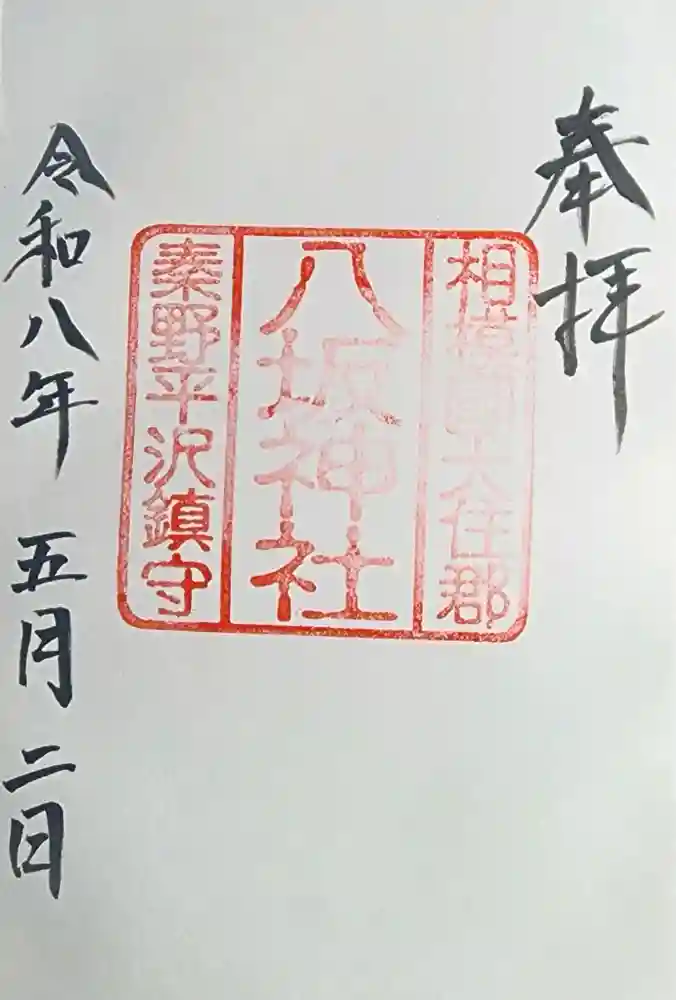 奉拝
相模国大住郡
八坂神社
秦野平沢鎮守
令和八年 五月 二日